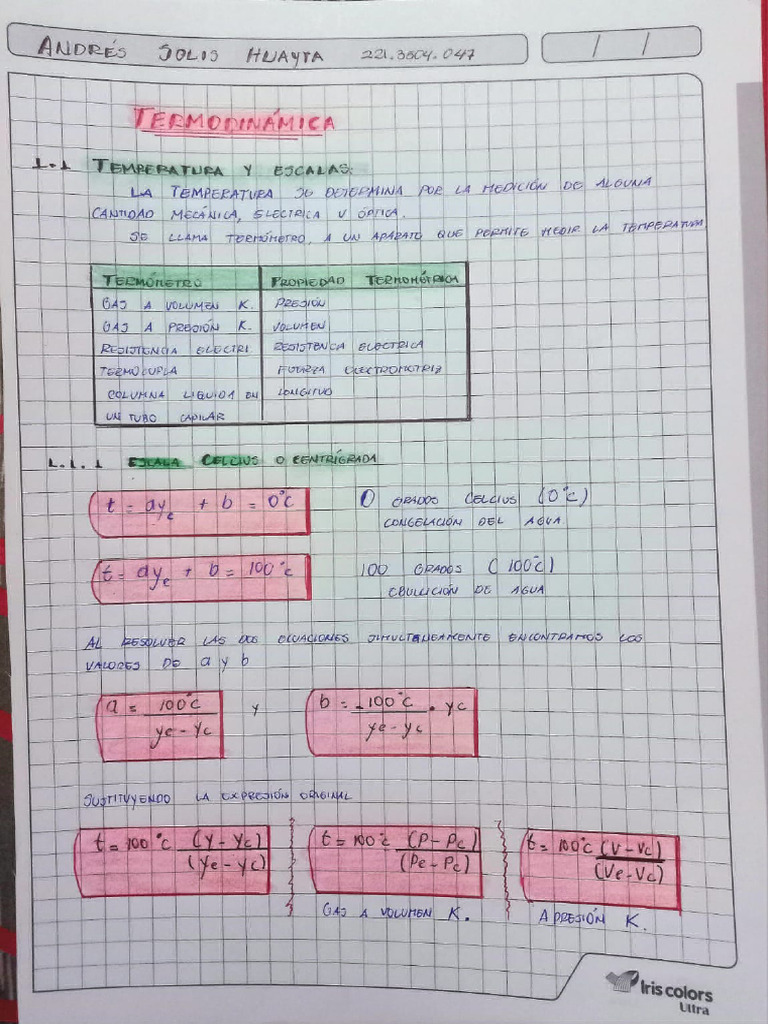 ANDRÉS SOLIS HUAYTA 221.3504.047 / /
TERMODINÁMICA
1.1 TEMPERATURA Y ESCALAS:
LA TEMPERATURA SE DETERMINA POR LA MEDICIÓN DE ALGUNA
CANTIDAD MECÁNICA, ELECTRICA U ÓPTICA.
SE LLAMA TERMÓMETRO, A UN APARATO QUE PERMITE MEDIR LA TEMPERATURA
TERMÓMETRO PROPIEDAD TERMOMÉTRICA
GAS A VOLUMEN K. PRESIÓN
GAS A PRESIÓN K. VOLUMEN
RESISTENCIA ELECTRI RESISTENCA ELECTRICA
TERMOCUPLA FUERZA ELECTROMOTRIZ
COLUMNA LIQUIDA EN LONGITUD
UN TUBO CAPILAR
1.1.1 ESCALA CELCIUS O CENTRÍGRADA
t = ay_c + b = 0°C 0 GRADOS CELCIUS (0°C)
CONGELACIÓN DEL AGUA
t = ay_e + b = 100°C 100 GRADOS (100°C)
EBULLICIÓN DE AGUA
AL RESOLVER LAS DOS ECUACIONES SIMULTANEAMENTE ENCONTRAMOS LOS
VALORES DE a y b
a = 100°C / ye - yc y b = -100°C / ye - yc . yc
SUSTITUYENDO LA EXPRESIÓN ORIGINAL
t = 100°C (y - yc) / (ye - yc) t = 100°C (P - Pc) / (Pe - Pc) t = 100°C (V - Vc) / (Ve - Vc)
GAS A VOLUMEN K. A PRESIÓN K.
Iris colors
Ultra